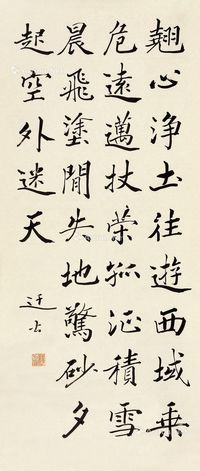 翹心淨土往遊西域乘
危遠邁杖策孤征積雪
晨飛塗閒失地驚砂夕
起空外迷天